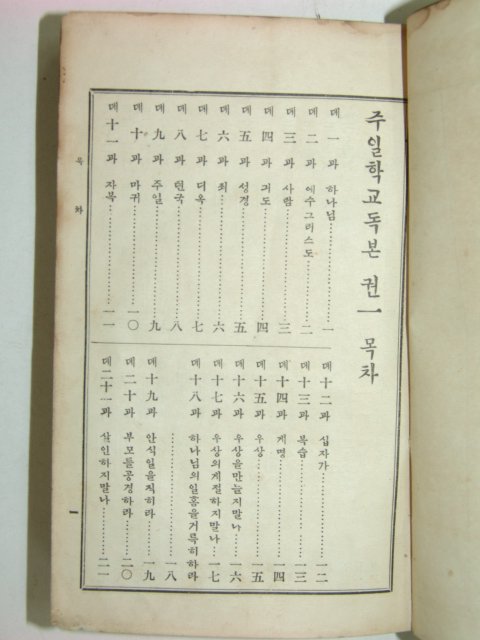 주일학교독본 권一 목차
데一과 하나님 一
데二과 예수그리스도 二
데三과 사람 三
데四과 긔도 四
데五과 성경 五
데六과 죄 六
데七과 디옥 七
데八과 텬국 八
데九과 주일 九
데十과 마귀 一〇
데十一과 자복 一一
데十二과 십자가 一二
데十三과 복습 一三
데十四과 계명 一四
데十五과 우상 一五
데十六과 우상을만늘지말나 一六
데十七과 우상의게절하지말나 一七
데十八과 하나님의일홈을거룩히하라
一八
데十九과 안식일을직히라 一九
데二十과 부모를공경하라 二〇
데二十一과 살인하지말나 二一
목차
一